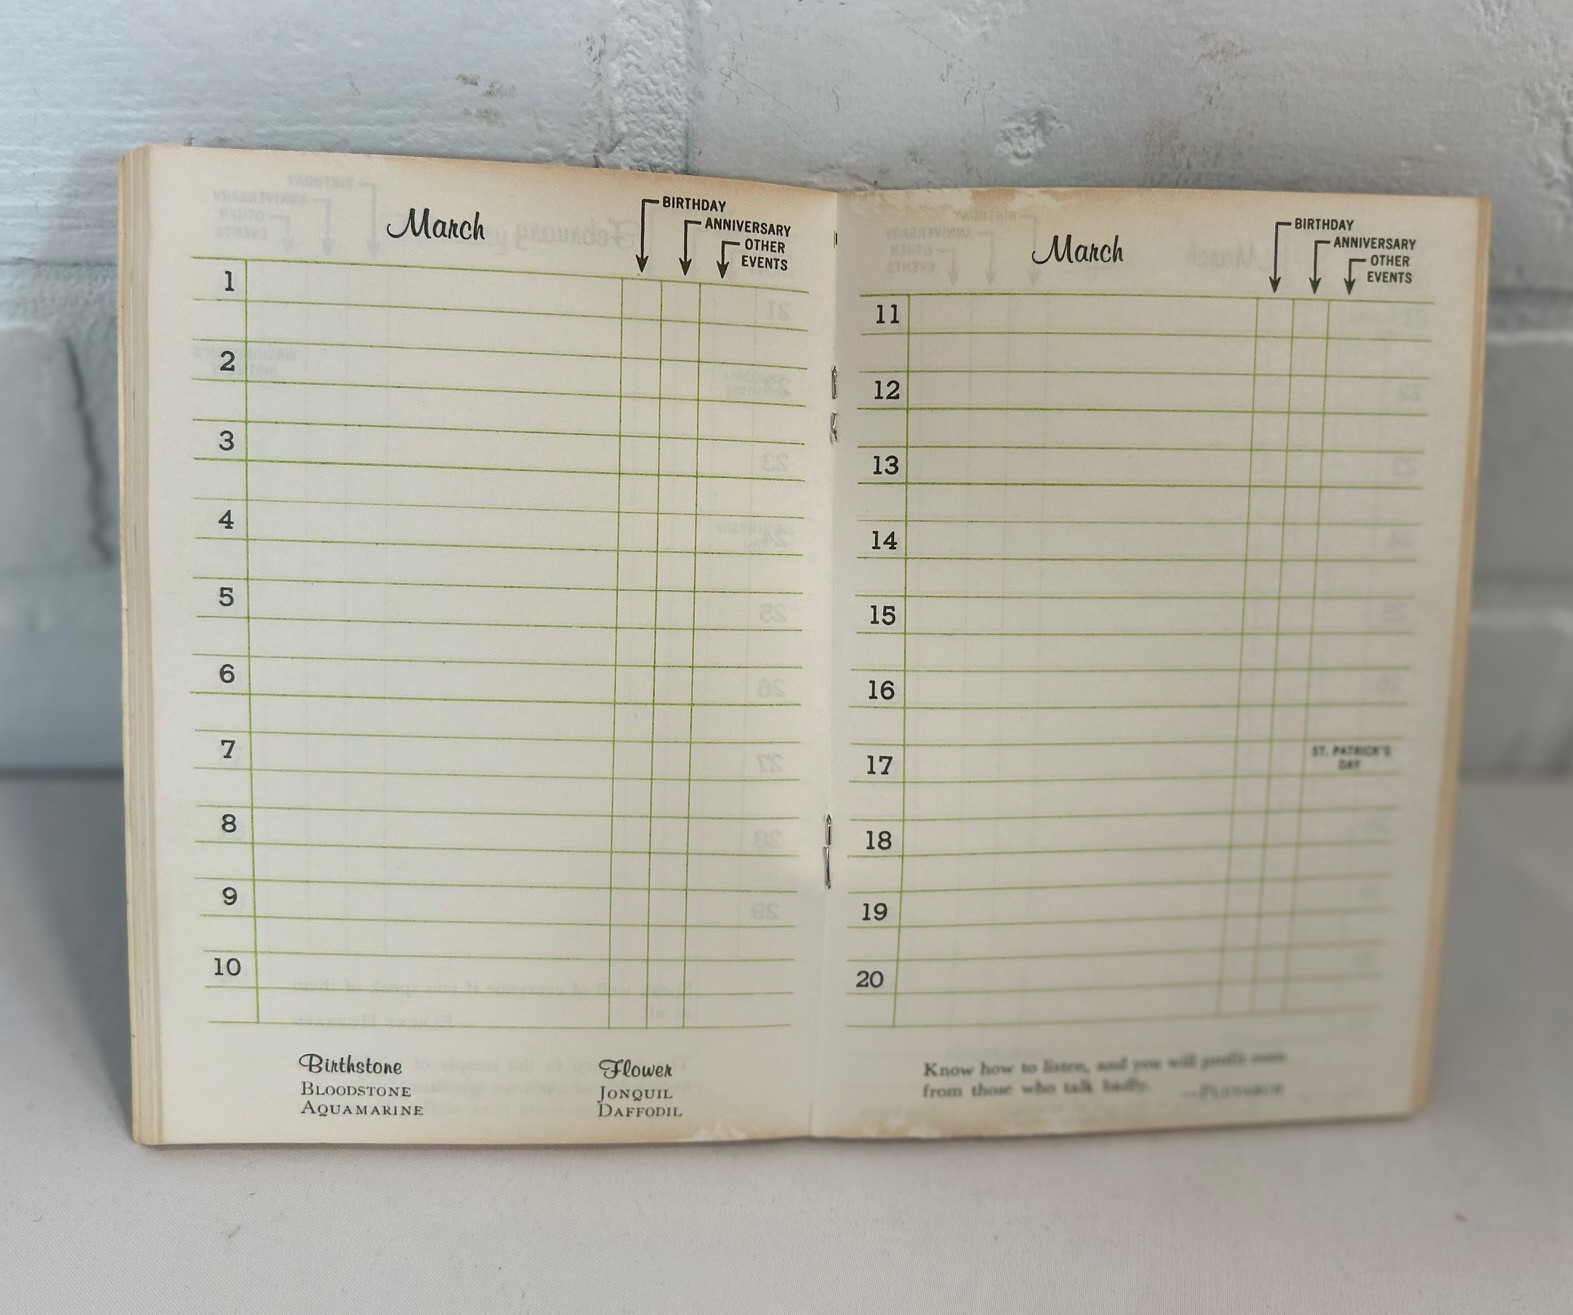 March
BIRTHDAY
ANNIVERSARY
OTHER
EVENTS
1
2
3
4
5
6
7
8
9
10
Birthstone
BLOODSTONE
AQUAMARINE
Flower
JONQUIL
DAFFODIL
March
BIRTHDAY
ANNIVERSARY
OTHER
EVENTS
11
12
13
14
15
16
17
ST. PATRICK'S
DAY
18
19
20
Know how to listen, and you will profit even
from those who talk badly. —PLUTARCH